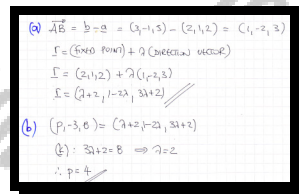 (a) AB = b - a = (3,-1,5) - (2,1,2) = (1,-2,3)
r = (FIXED POINT) + λ (DIRECTION VECTOR)
r = (2,1,2) + λ(1,-2,3)
r = (λ+2, 1-2λ, 3λ+2)
(b) (p,-3,8) = (λ+2, 1-2λ, 3λ+2)
(k): 3λ+2=8 ⟹ λ=2
∴ p=4